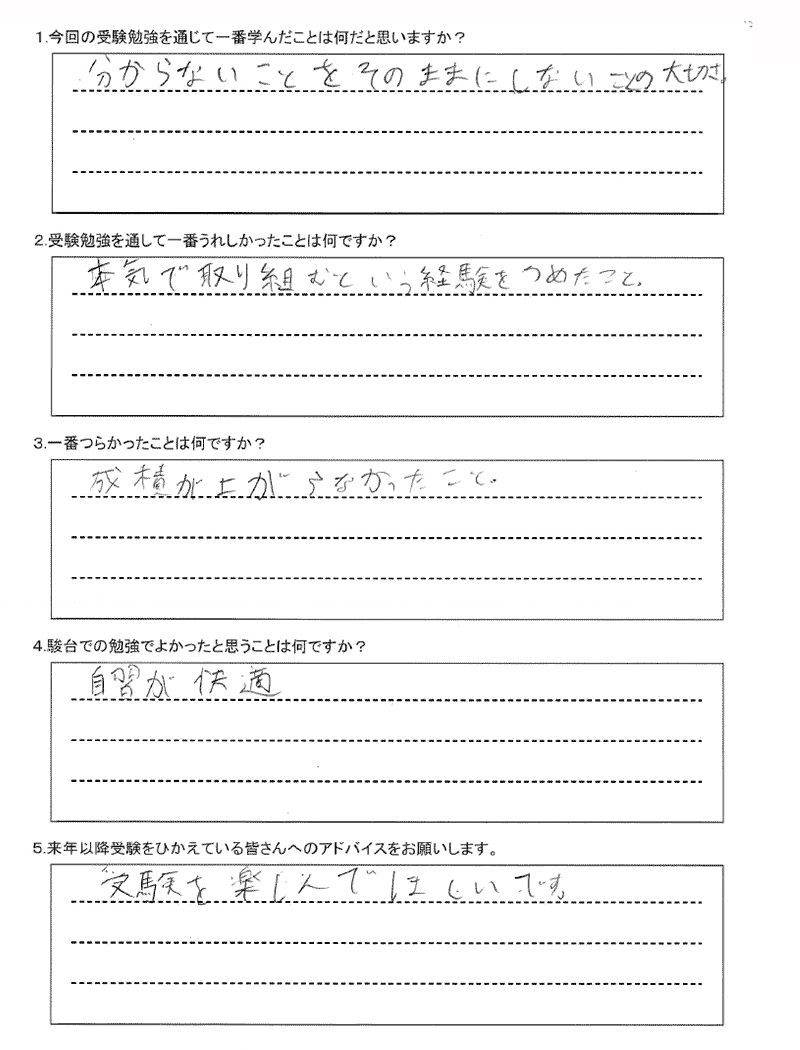 1.今回の受験勉強を通じて一番学んだことは何だと思いますか？
分からないことをそのままにしないことの大切さ。
2.受験勉強を通して一番うれしかったことは何ですか？
本気で取り組むという経験をつめたこと。
3.一番つらかったことは何ですか？
成積が上がらなかったこと。
4.駿台での勉強でよかったと思うことは何ですか？
自習が快適
5.来年以降受験をひかえている皆さんへのアドバイスをお願いします。
受験を楽しんでほしいです。